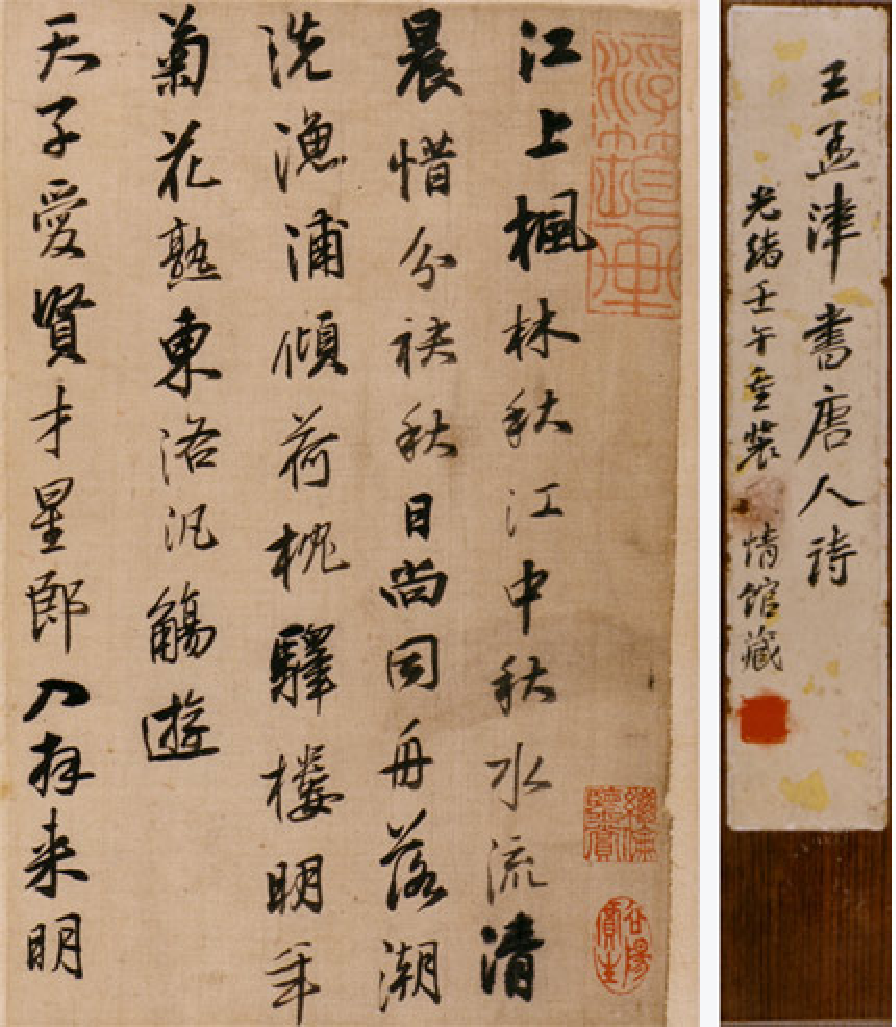 王孟津書唐人詩
光緒壬午重裝 情館藏
江上楓林秋江中秋水流清
晨惜分袂秋日尚同舟落潮
洗漁浦傾荷枕驛樓明年
菊花熟東洛汎觴遊
天子愛賢才星郎入拜来明